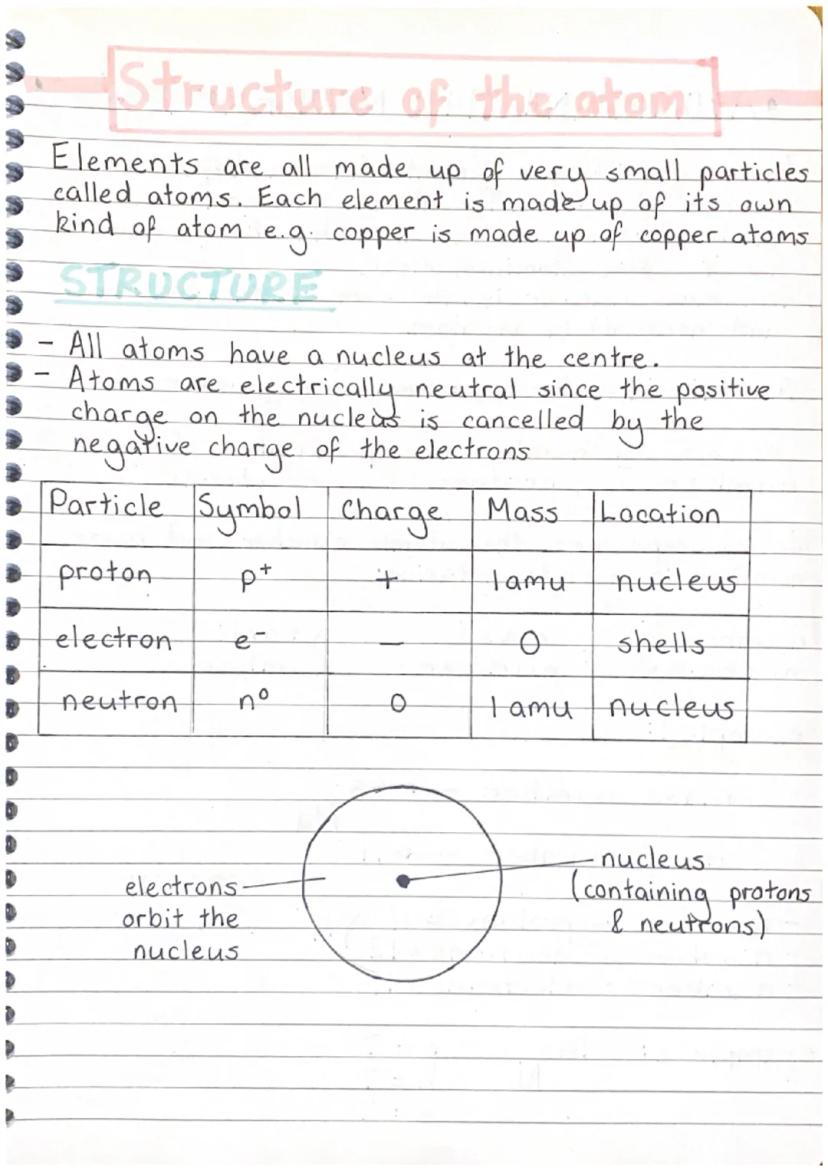 Structure of the atom
Elements are all made up of very small particles
called atoms. Each element is made up of its own
kind of atom e.g. copper is made up of copper atoms
STRUCTURE
- All atoms have a nucleus at the centre.
- Atoms are electrically neutral since the positive
charge on the nucleus is cancelled by the
negative charge of the electrons
Particle Symbol Charge Mass Location
proton p⁺ + 1 amu nucleus
electron e⁻ — 0 shells
neutron n⁰ 0 1 amu nucleus
electrons
orbit the
nucleus
nucleus
(containing protons
& neutrons)